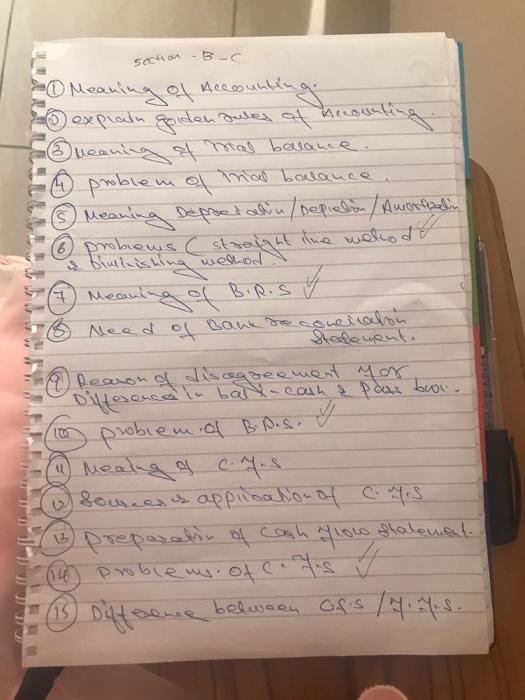 section - B - C
① Meaning of Accounting.
② explain golden rules of Accounting.
③ Meaning of Trial balance.
④ problem of Trial balance.
⑤ Meaning Depreciation / Depletion / Amortization
⑥ problems ( straight line method
& Diminishing method.
⑦ Meaning of B.R.S
⑧ Need of Bank reconciliation
Statement.
⑨ Reason of disagreement for
Difference in bal - cash & pass book.
⑩ problem of B.R.S.
11 Meaning of C.F.S
12 Sources & application of C.F.S
13 preparation of cash flow statement.
14 problems of C.F.S
15 Difference between C.F.S / F.F.S.